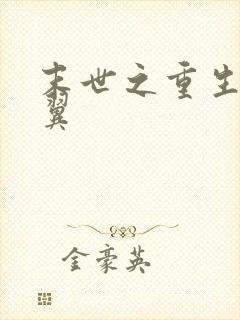 末世之重生
翼
金豪英